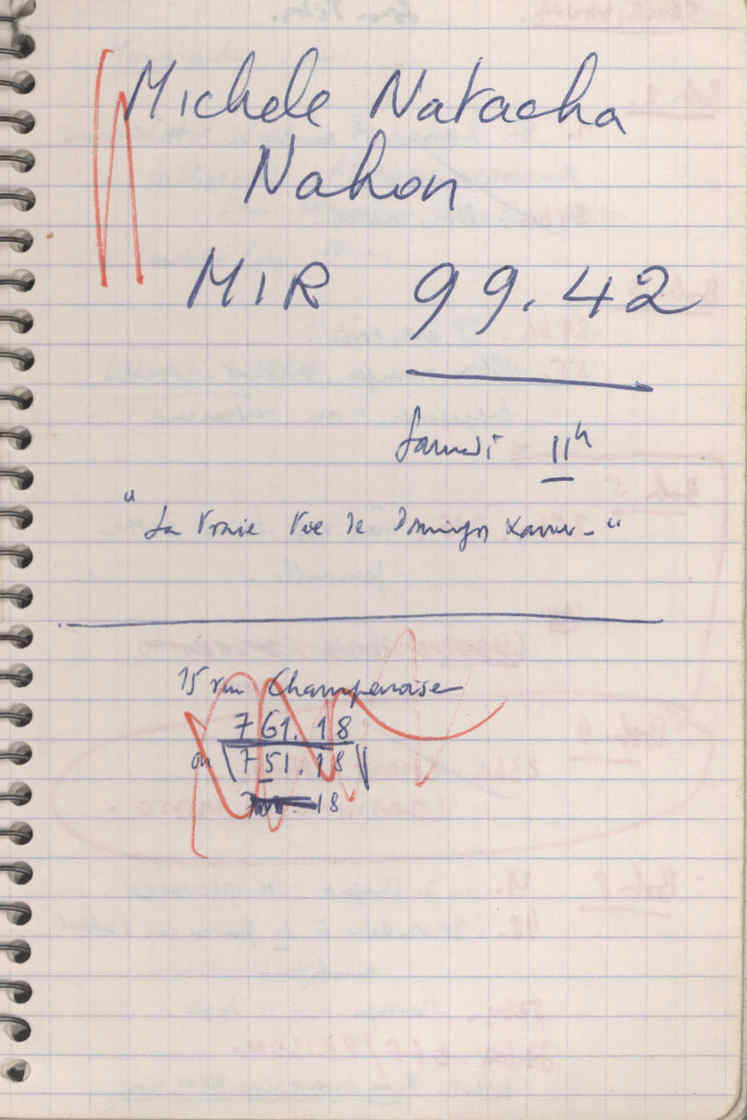 Michele Natacha
Nahon
MIR 99.42
Samedi 11h
"La Vraie Vie de Domingos Xavier-"
15 rue Champenoise
761.18
ou 751.18
18